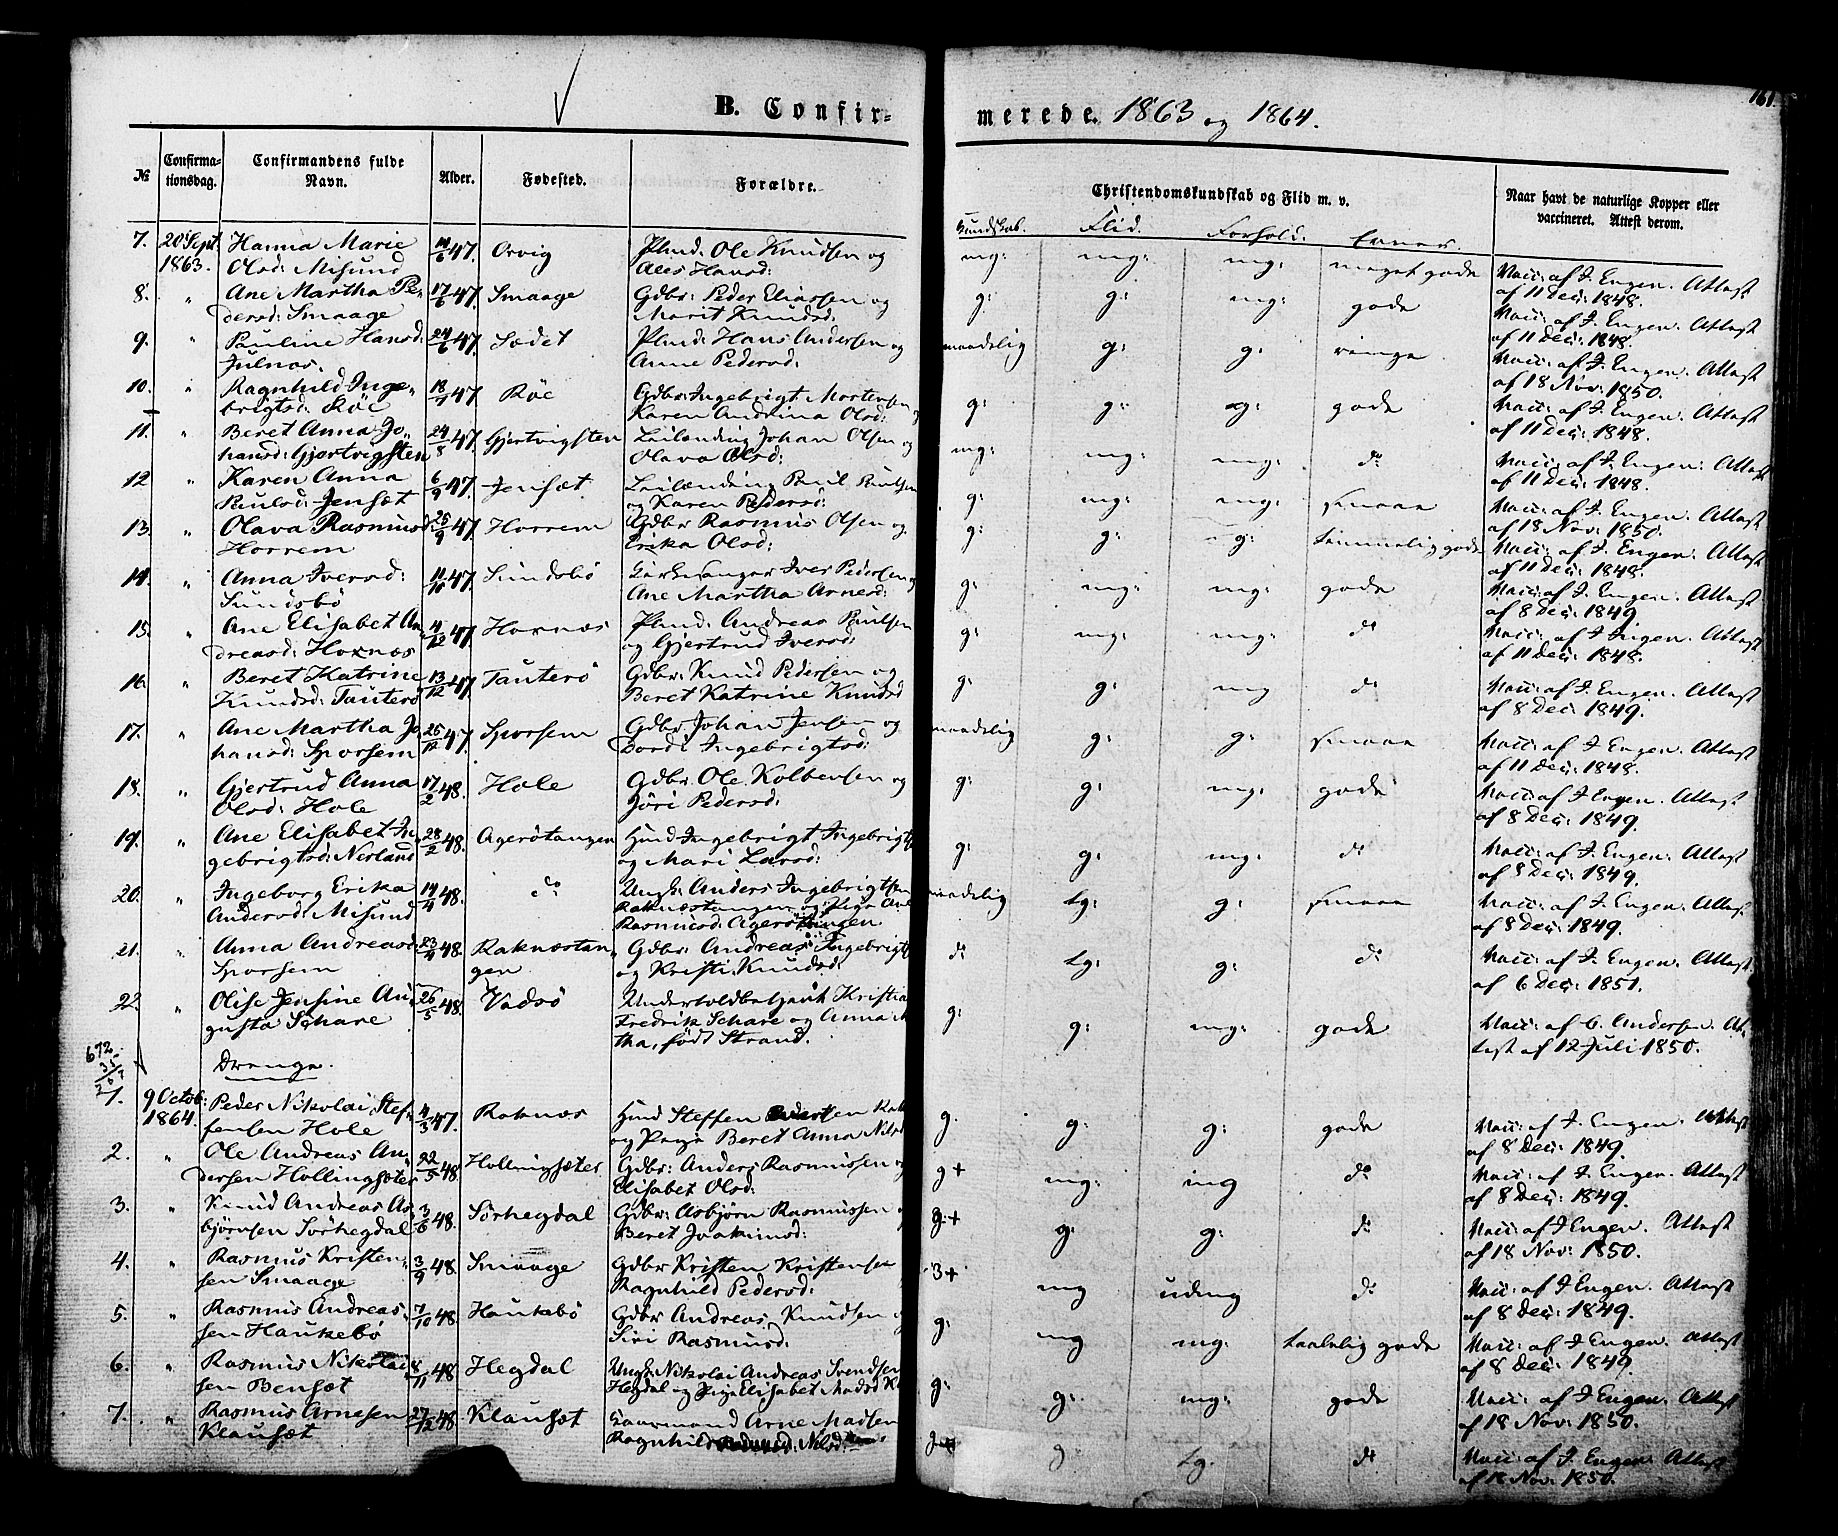 161.
B. Confir-
merede. 1863 og 1864.
№
Confirma-
tionsdag.
Confirmandens fulde
Navn.
Alder.
Fødested.
Forældre.
Christendomskundskab og Flid m. v.
Naar havt de naturlige Kopper eller
vaccineret. Attest derom.
Kundskab. Flid. Forhold. Evner.
7. 20 Sept. Hanna Marie 10/6 47. Orvig Plmd: Ole Knudsen og mg: mg: mg: meget gode Vacc: af J. Engen. Attest
1863. Olsd: Misund Ales Hansd: af 11 Dec: 1848.
8. " Ane Martha Pe- 17/6 47. Smaage Gdbr: Peder Eliassen og g: g: mg: gode Vacc: af J. Engen. Attest
dersd: Smaage Marit Knudsd: af 11 Dec: 1848.
9. " Pauline Hansd: 24/6 47. Sædet Plmd: Hans Andersen og maadelig g: g: ringe Vacc: af J. Engen. Attest
Julnæs. Anne Pedersd: af 18 Nov: 1850.
10. " Ragnhild Inge- 18/7 47 Röe Gdbr: Ingebrigt Mortensen g: g: g: gode Vacc: af J. Engen. Attest
brigtsd: Röe Karen Andrina Olsd: af 11 Dec: 1848.
11. " Beret Anna Jo- 24/8 47. Gjertvigsten Leilænding Johan Olsen og mg: mg: mg: do Vacc: af J. Engen. Attest
hansd: Gjertvigsten Olava Olsd: af 11 Dec: 1848.
12 " Karen Anna 6/9 47. Jensæt Leilænding Paul Paulsen g: mg: mg: smaae Vacc: af J. Engen. Attest
Paulsd: Jensæt og Karen Pedersd: af 18 Nov: 1850.
13. " Olava Rasmusd: 25/9 47 Horrem Gdbr Rasmus Olsen og g: g: g: temmelig gode Vacc: af J. Engen. Attest
Horrem Erika Olsd: af 11 Dec: 1848.
14. " Anna Iversd: 11/10 47. Sundsbö Kirkesanger Iver Pedersen g: mg: mg: gode Vacc: af J. Engen. Attest
Sundsbö Ane Martha Arnesd: af 8 Dec: 1849.
15. " Ane Elisabet An- 4/12 47. Hoxnæs Plmd: Andreas Paulsen g: mg: mg: do Vacc: af J Engen. Attest
dreasd: Hoxnæs og Gjertrud Iversd: af 11 Dec: 1848.
16. " Beret Katrine 13/12 47. Tauterö Gdbr: Knud Pedersen og g: g: mg do Vacc: af J. Engen. Attest
Knudsd: Tauterö Beret Katrine Knudsd af 8 Dec: 1849.
17. " Ane Martha Jo 25/12 47. Sporsem Gdbr Johan Jensen og maadelig g: g: smaae Vacc: af J Engen. Attest
hansd: Sporsem Dordi Ingebrigtsd: af 11 Dec: 1848.
18. " Gjertrud Anna 17/2 48. Hole Gdbr: Ole Kolbensen og g: g: mg: gode Vacc: af J Engen. Attest
Olsd: Hole Jöri Pedersd: af 8 Dec: 1849.
19. " Ane Elisabet In 28/2 48. Agerötangen Hmd Ingebrigt Ingebrigts g: g: mg: do Vacc: af J. Engen. Attest
gebrigtsd: Nerland og Mari Larsd: af 8 Dec: 1849.
20. " Ingeborg Erika 14/4 48. do Ungk: Anders Ingebrigtsen maadelig tg: g: smaae Vacc: af J. Engen. Attest
Andersd: Misund Raknæstangen og Pige Ane
Rasmusd: Agerötangen af 8 Dec: 1849.
21. " Anna Andreasd 23/4 48. Raknæstan- Gdbr: Andreas Ingebrigts do tg: g: do Vacc: af J. Engen. Attest
Sporsem gen og Kristi Knudsd: af 6 Dec: 1851.
22. " Olise Jensine Au- 26/5 48. Vadsö Undertoldbetjent Kristia g: g: mg: gode Vacc: af C. Andersen. At-
gusta Schare Fredrik Schare og Anna M test af 12 Juli 1850.
tha, född Strand.
672
35
207
Drenge.
1. 9 Octob: Peder Nikolai Stef- 4/3 47. Raknæs Hmd Steffen Rak g. g: g: gode Vacc: af J. Engen. Attest
1864. fensen Hole og Pige Beret Anna Nilsd af 8 Dec: 1849.
2. " Ole Andreas An- 22/5 48 Hollingsæter Gdbr: Anders Rasmussen og g+ mg: mg do Vacc: af J. Engen. Attest
dersen Hollingsæter Elisabet Olsd: af 8 Dec: 1849.
3. " Knud Andreas As 3/6 48. Sörhegdal Gdbr: Asbjörn Rasmussen g:+ g: g: do Vacc: af J Engen. Attest
björnsen Sörhegdal Beret Joakimsd: af 18 Nov: 1850.
4. " Rasmus Kristen- 3/9 48 Smaage Gdbr Kristen Kristensen 3+ mg udmg do Vacc: af J Engen. Attest
sen Smaage Ragnhild Pedersd: af 8 Dec: 1849.
5. " Rasmus Andreas- 7/10 48 Haukebö Gdbr Andreas Knudsen g: mg mg: taalelig gode Vacc: af J. Engen. Attest
sen Haukebö Siri Rasmusd: af 8 Dec: 1849.
6. " Rasmus Nikolai 8/11 48 Hegdal Ungk: Nikolai Andreas Svendsen g: g: mg: gode Vacc: af J Engen. Attest
sen Bensæt Hegdal og Pige Elisabet Madsd af 18 Nov: 1850.
7. " Rasmus Arnesen 27/12 48 Klausæt Gaarmand Arne Madsen g g tg. do Vacc: af J. Engen. Attest
Klausæt Ragnhild Nilsd: af 18 Nov: 1850.